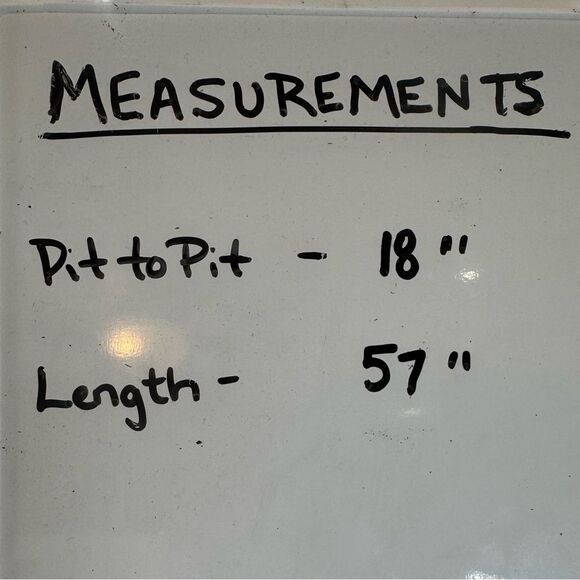 MEASUREMENTS
Pit to Pit - 18"
Length - 57"